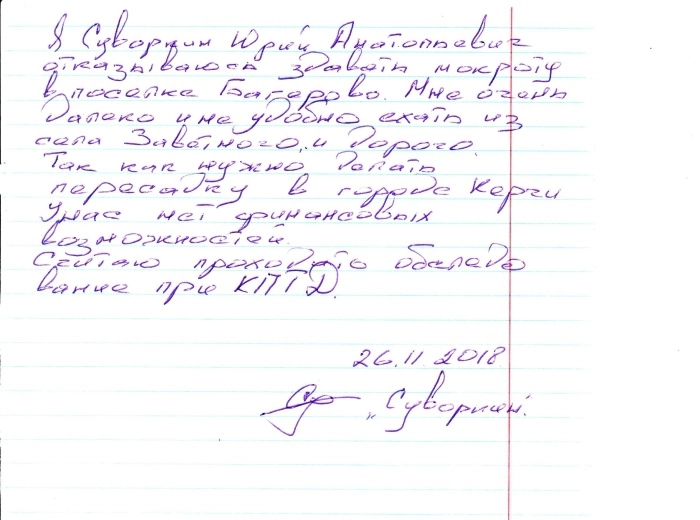 Я Суворкин Юрий Анатольевич
отказываюсь здавать мокроту
в поселке Багерово. Мне очень
далеко и не удобно ехать из
села Заветного, и дорого.
Так как нужно делать
пересадку в городе Керчи
У нас нет финансовых
возможностей.
Считаю проходить обследо
вание при КПТД.
26.11.2018
"Суворкин"